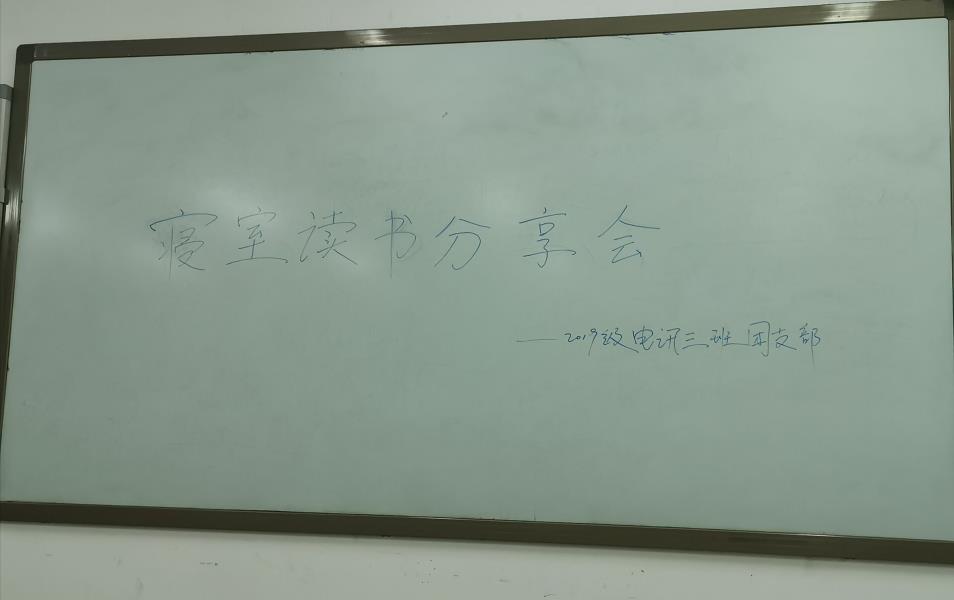 寝室读书分享会
——2019级电讯三班团支部